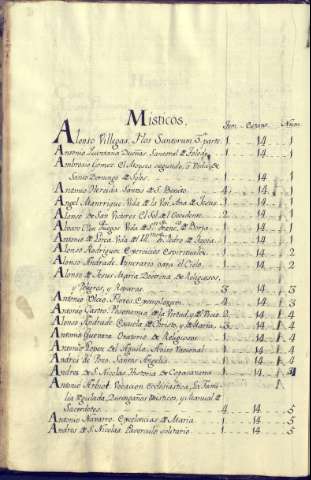 Misticos.
Tom. Estant. Num.
Alonso Villegas, Flos Sanctorum 3ª parte. 1 14 1
Antonio Quintana Dueñas Santoral de Toledo 1 14 1
Ambrosio Gomez. El Moyses segundo, o Vida de
Santo Domingo de Silos. 1 14 1
Antonio Heredia Santos de S. Benito. 4 14 1
Angel Manrrique Vida de la Ven. Ana de Jesus 1 14 1
Alonso de San Vitores El Sol del Occidente. 2 14 1
Alvaro Cien fuegos Vida de S. Franc. de Borja 1 14 1
Antonio de Lorca Vida del de Pedro de 1 14 1
Alonso Rodriguez Exercicios Espirituales 1 14 2
Alonso Andrade. Itinerario para el Cielo. 1 14 2
Alonso de Jesus Maria Doctrina de Religiosos,
y 3 14 3
Antonio 4 14 3
Antonio Castro. de la Virtud, y de 2 14 4
Alonso Andrade Escuela de Christo, y de Maria. 3 14 4
Antonio Guevara Oratorio de Religiosos 1 14 4
Antonio Lopez del Aguila 1 14 4
Andres de 1 14 4
Andres de S. Nicolas Historia de Copacavana 1 14
Antonio Arbiol. Vocacion Ecclesiastica, la Fami-
lia Regulada, Desengaños Misticos, y Manual de
Sacerdotes. 4 14 5
Antonio Navarro. Excelencias de Maria 1 14 5
Andres de S. Nicolas. Paserculo solitario. 1 14 5